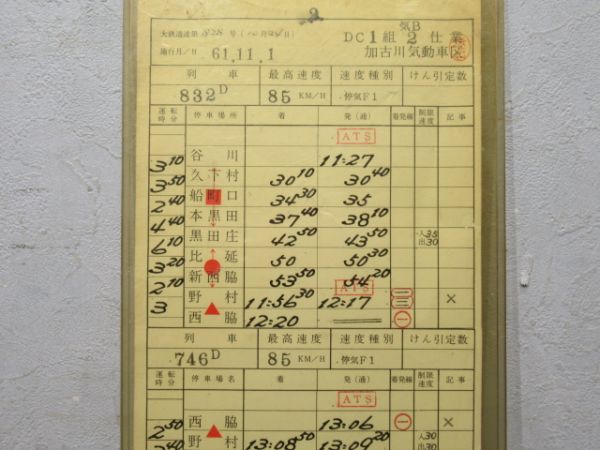 2
大鉄道達第828号(10月24日)
気B
DC1組2仕業
施行月/日 61.11.1
加古川気動車区
列車 最高速度 速度種別 けん引定数
832D 85KM/H 停気F1
運転時分 停車場所 着 発(通) 着発線 制限速度 記事
ATS
谷川 11:27
3 10 久下村 30 10 30 40
3 50 船町口 34 30 35
2 40 本黒田 37 40 38 10
4 40 黒田庄 42 50 43 50 入35 出30
6 10 比延 50 50 30
3 20 新西脇 53 50 54 20
ATS
2 10 野村 11:56 30 12:17 二 三 ×
3 西脇 12:20 一
列車 最高速度 速度種別 けん引定数
746D 85KM/H 停気F1
運転時分 停車場名 着 発(通) 着発線 制限速度 記事
ATS
西脇 13:06 一 ×
2 50 野村 13:08 50 13:09 20 入30 出30